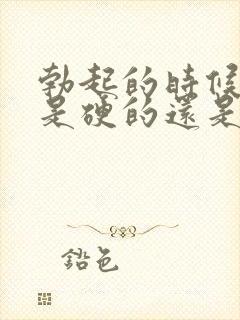 勃起的時候
是硬的還是
鉛色